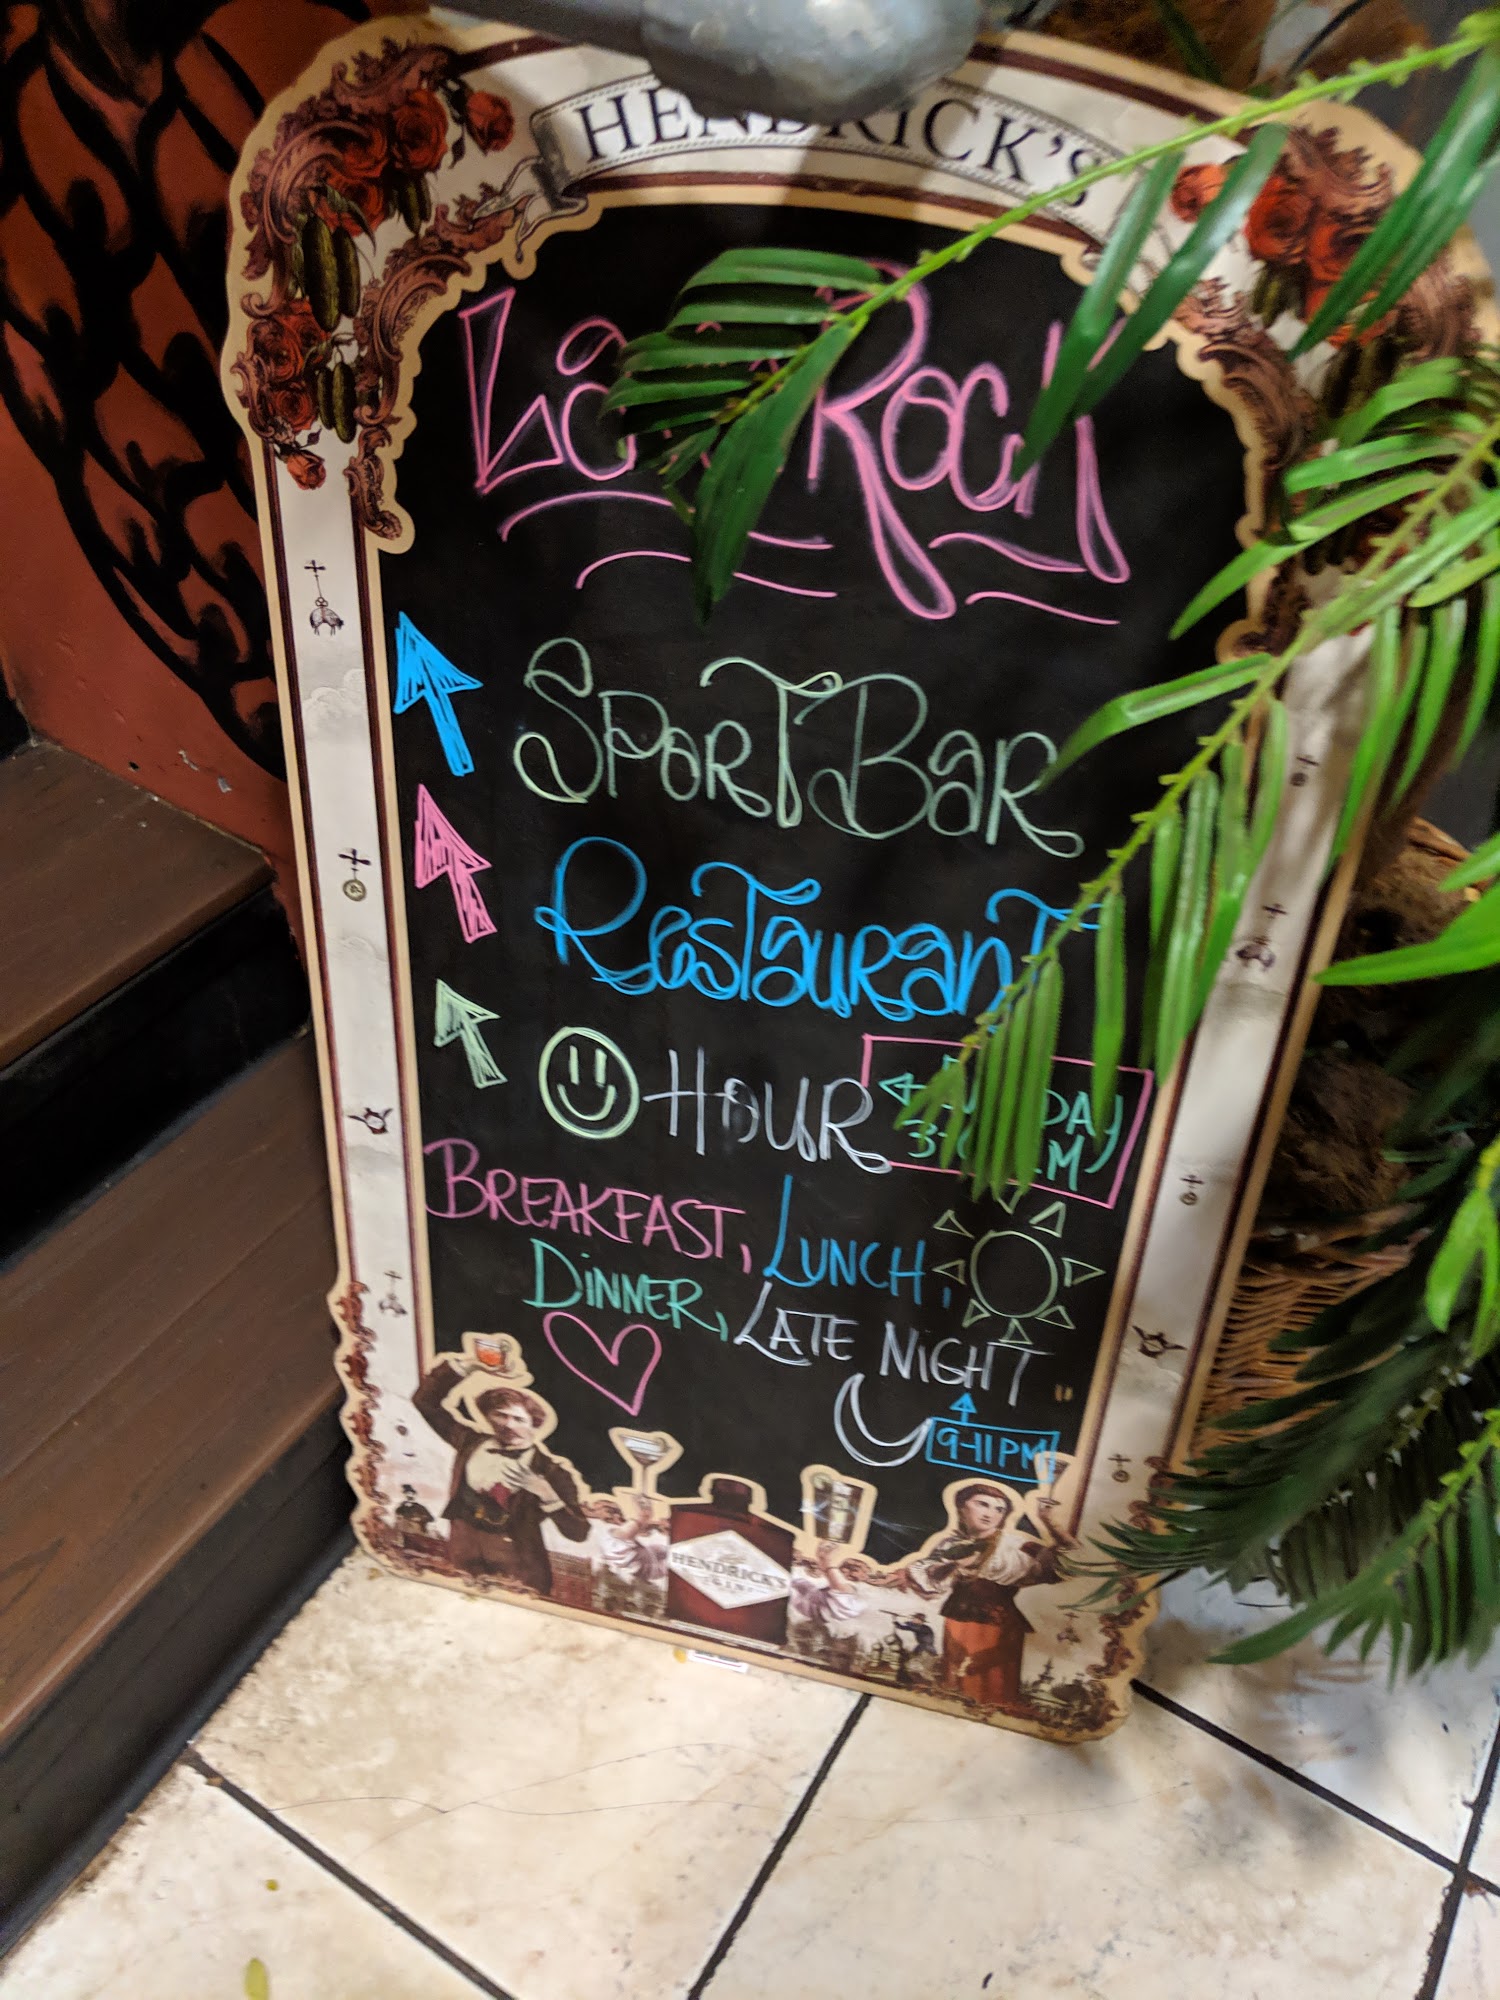 HENDRICK'S
Rock
SportBar
Restaurant
HOUR
BREAKFAST, LUNCH,
DINNER, LATE NIGHT
9-11PM
HENDRICK'S
GIN